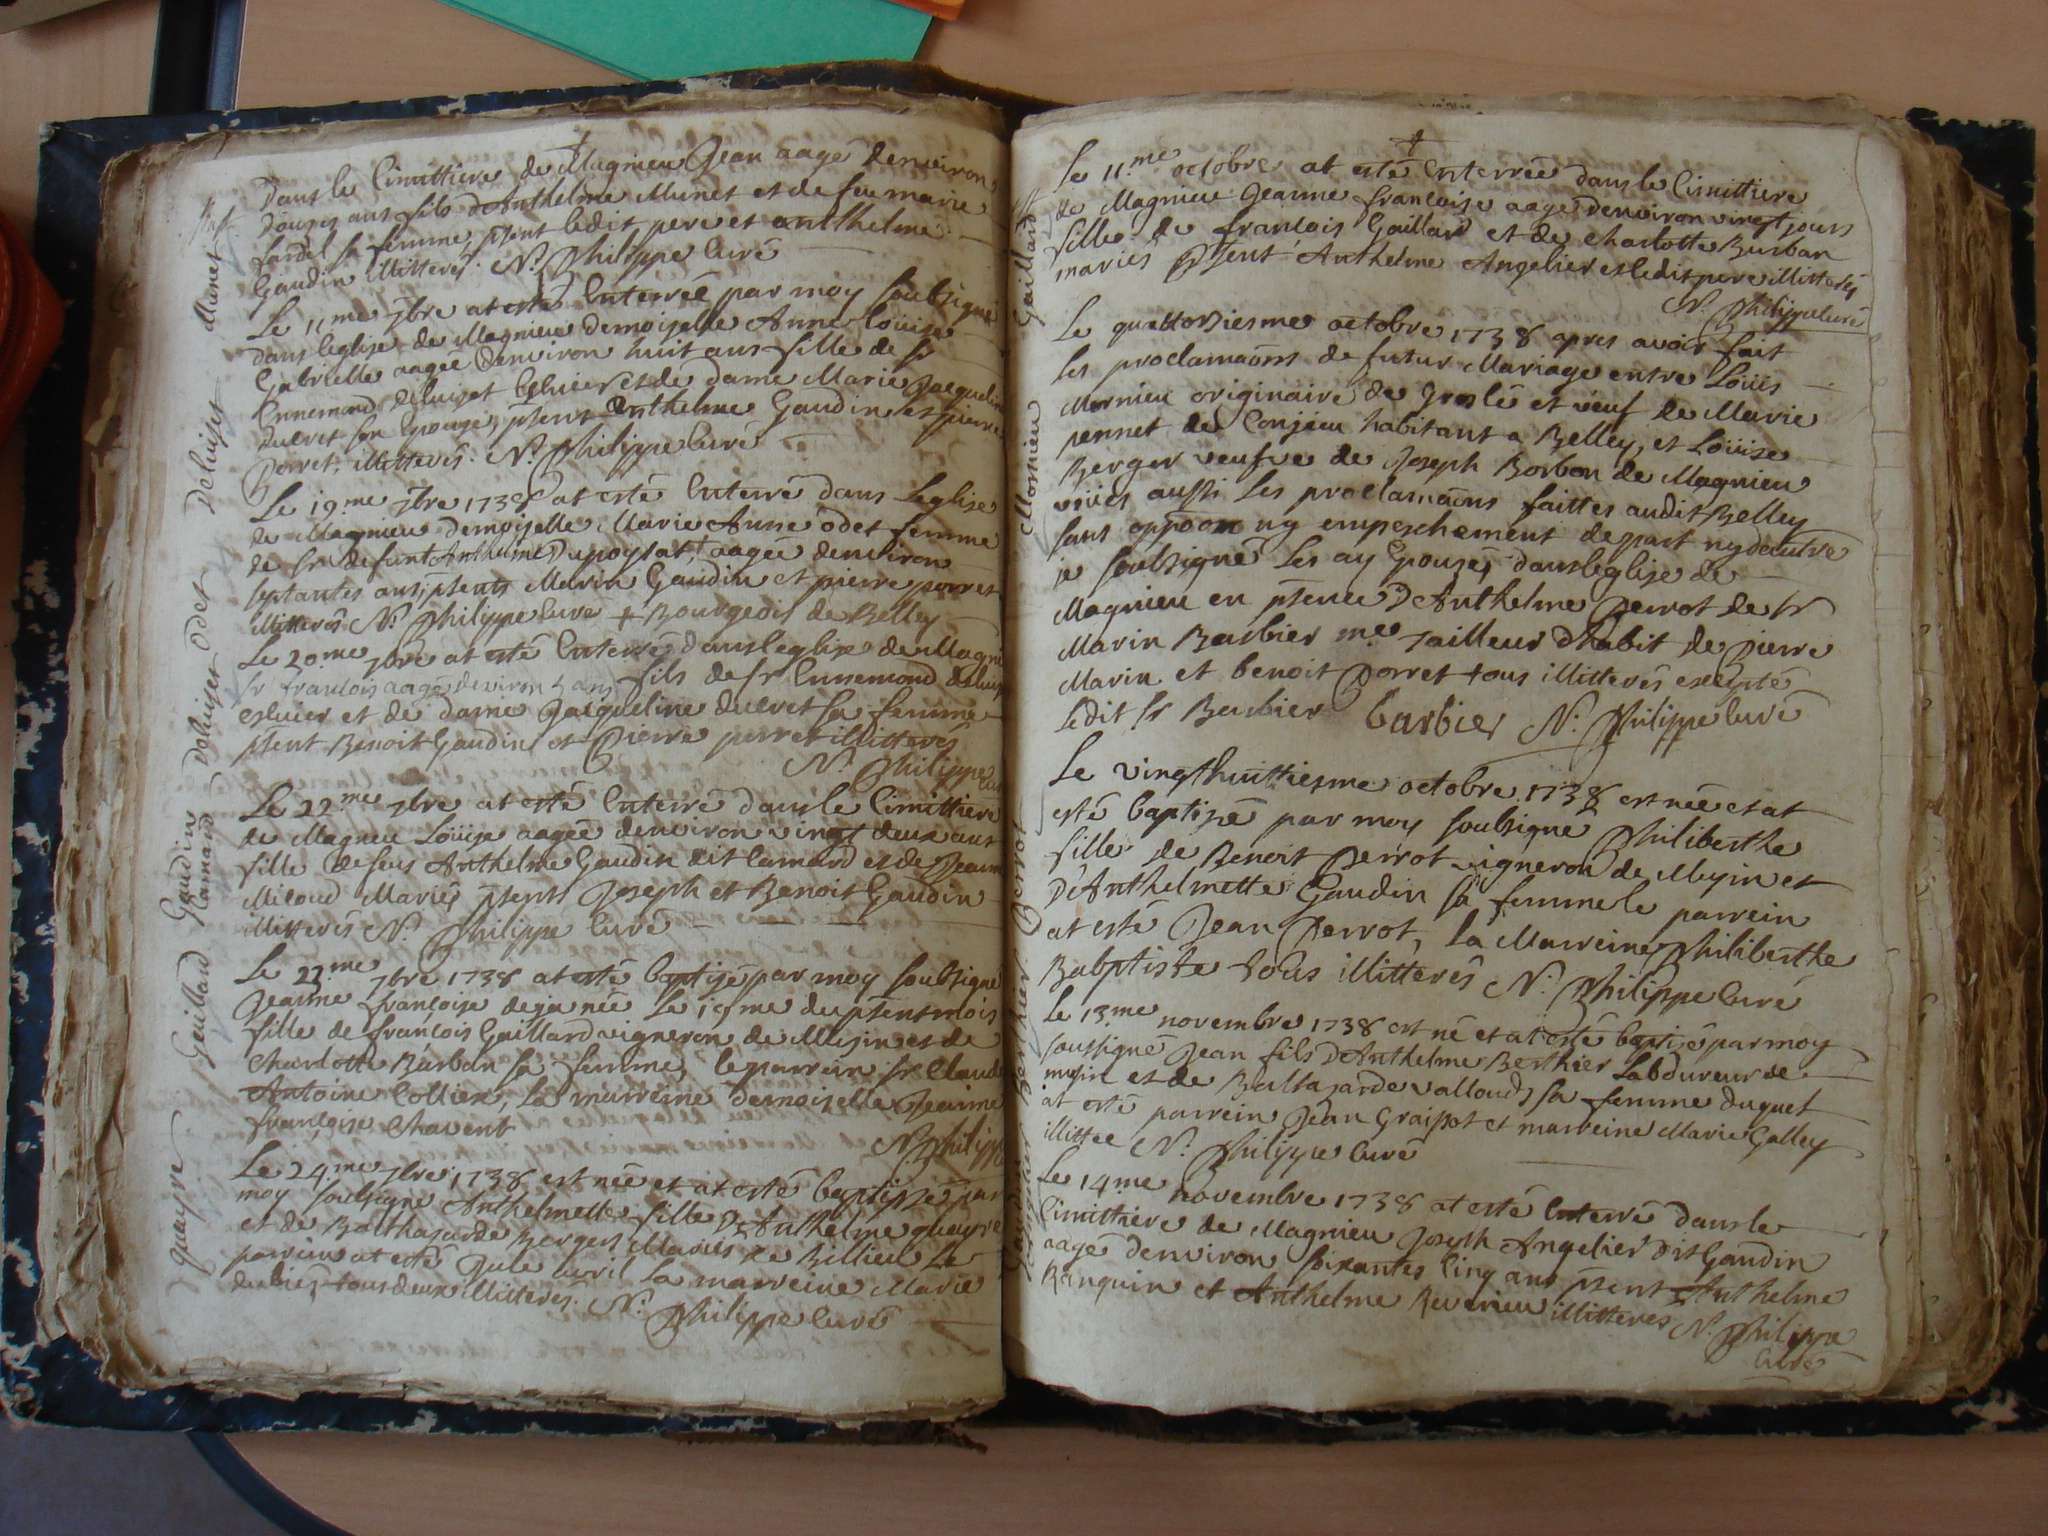 Dans le Cimittiere de Magnieu Jean aagé denviron
douzes ans fils d'Anthelme Munet et de feu marie
fardel sa femme, psent ledit pere et antthelme
Gaudin illitterés. N. Philippe Curé
Munet
Le 11me 7bre at esté Enterrée par moy soubsigné
dans leglise de Magnieu demoiselle Anne Louise
Gabrielle aagee denviron huit ans fille de sr
Ennemond deluiset Escuier et de dame Marie Jacqueline
Ducret son Epouse, psent Anthelme Gaudin et pierre
Perret, illitterés. N. Philippe Curé
Deluiset
Le 19me 7bre 1738 at esté Enterré dans Leglise
de Magnieu demoiselle Marie Anne odet femme
de sr defunt Anthelme Dupoysat, + aagée denviron
septantes ans, psents Marin Gaudin et pierre perret
illitterés N. Philippe Curé + Bourgeois de Belley
Odet
Le 20me 7bre at esté Enterré dans leglise de Magnieu
sr francois aagé denviron 5 ans fils de sr Ennemond deluiset
escuier et de dame Jacqueline ducret sa femme
psent Benoit Gaudin et Pierre perret illitterés
N. Philippe
Deluiset
Le 22me 7bre at esté Enterré dans le Cimittiere
de Magnieu Louise aagée denviron vingt deux ans
fille de feus Anthelme Gaudin dit Camard et de Jeanne
Miloud Mariés psents Joseph et Benoit Gaudin
illitterés N. Philippe Curé
Gaudin
Camard
Le 22me 7bre 1738 at esté baptisé par moy soubsigné
Jeanne francoise deja née Le 19me du psent mois
fille de francois Gaillard vigneron de Musin et de
Charlotte Burban sa femme, le parrein sr Claude
Antoine Collier, La marreine demoiselle Jeanne
francoise Chavent
N. Philippe
Gaillard
Le 24me 7bre 1738 est née et at esté baptisée par
moy soubsigné Anthelmette fille d'Anthelme queyre
et de Balthasarde Berger Mariés de Billieu Le
parrein at esté Jule avril La marreine Marie
dubie, tous deux illitterés. N. Philippe Curé
queyre
Le 11me octobre at esté Enterrée dans le Cimittiere
de Magnieu Jeanne francoise aagé denviron vingt jours
fille de francois Gaillard et de charlotte Burban
mariés Psent Anthelme Angelier et ledit pere illitterés
N. Philippe Curé
Gaillard
Le quattorziesme octobre 1738 apres avoir fait
les proclamaons de futur Mariage entre Loüis
Mornieu originaire de Groslé et veuf de Marie
pennet de Conjieu habitant a Belley, et Loüise
Berger veufve de Joseph Borbon de Magnieu
vüies aussi Les proclamaons faittes audit Belley
sans oppoon ny empeschement de part ny dautre
je soubsigné Les ay Epousés dans leglise de
Magnieu en psence d'Anthelme Perrot de sr
Marin Barbier me Tailleur d'habit de Pierre
Marin et benoit Perret tous illitterés excepté
Ledit sr Barbier barbier N. Philippe Curé
Mornieu
Le vingthuittiesme octobre 1738 est née et at
esté baptisée par moy soubsigné Philiberthe
fille de Benoit Perrot vigneron de Musin et
D'Anthelmette Gaudin sa femme le parrein
at esté Jean Perrot, La Marreine Philiberthe
Babptiste tous illitterés N. Philippe Curé
Perrot
Le 13me novembre 1738 est né et at esté baptisé par moy
soussigné Jean fils d'Anthelme Berthier Laboureur de
musin et de Baltazarde valloud sa femme duquel
at esté parrein Jean Graisset et marreine Marie Galley
illittee N. Philippe Curé
Berthier
Le 14me novembre 1738 at esté Enterré dans le
Cimittiere de Magnieu Joseph Angelier dit Gaudin
aagé denviron soixantes Cinq ans psent Anthelme
Ranquin et Anthelme Reverieu illitterés N. Philippe
Curé